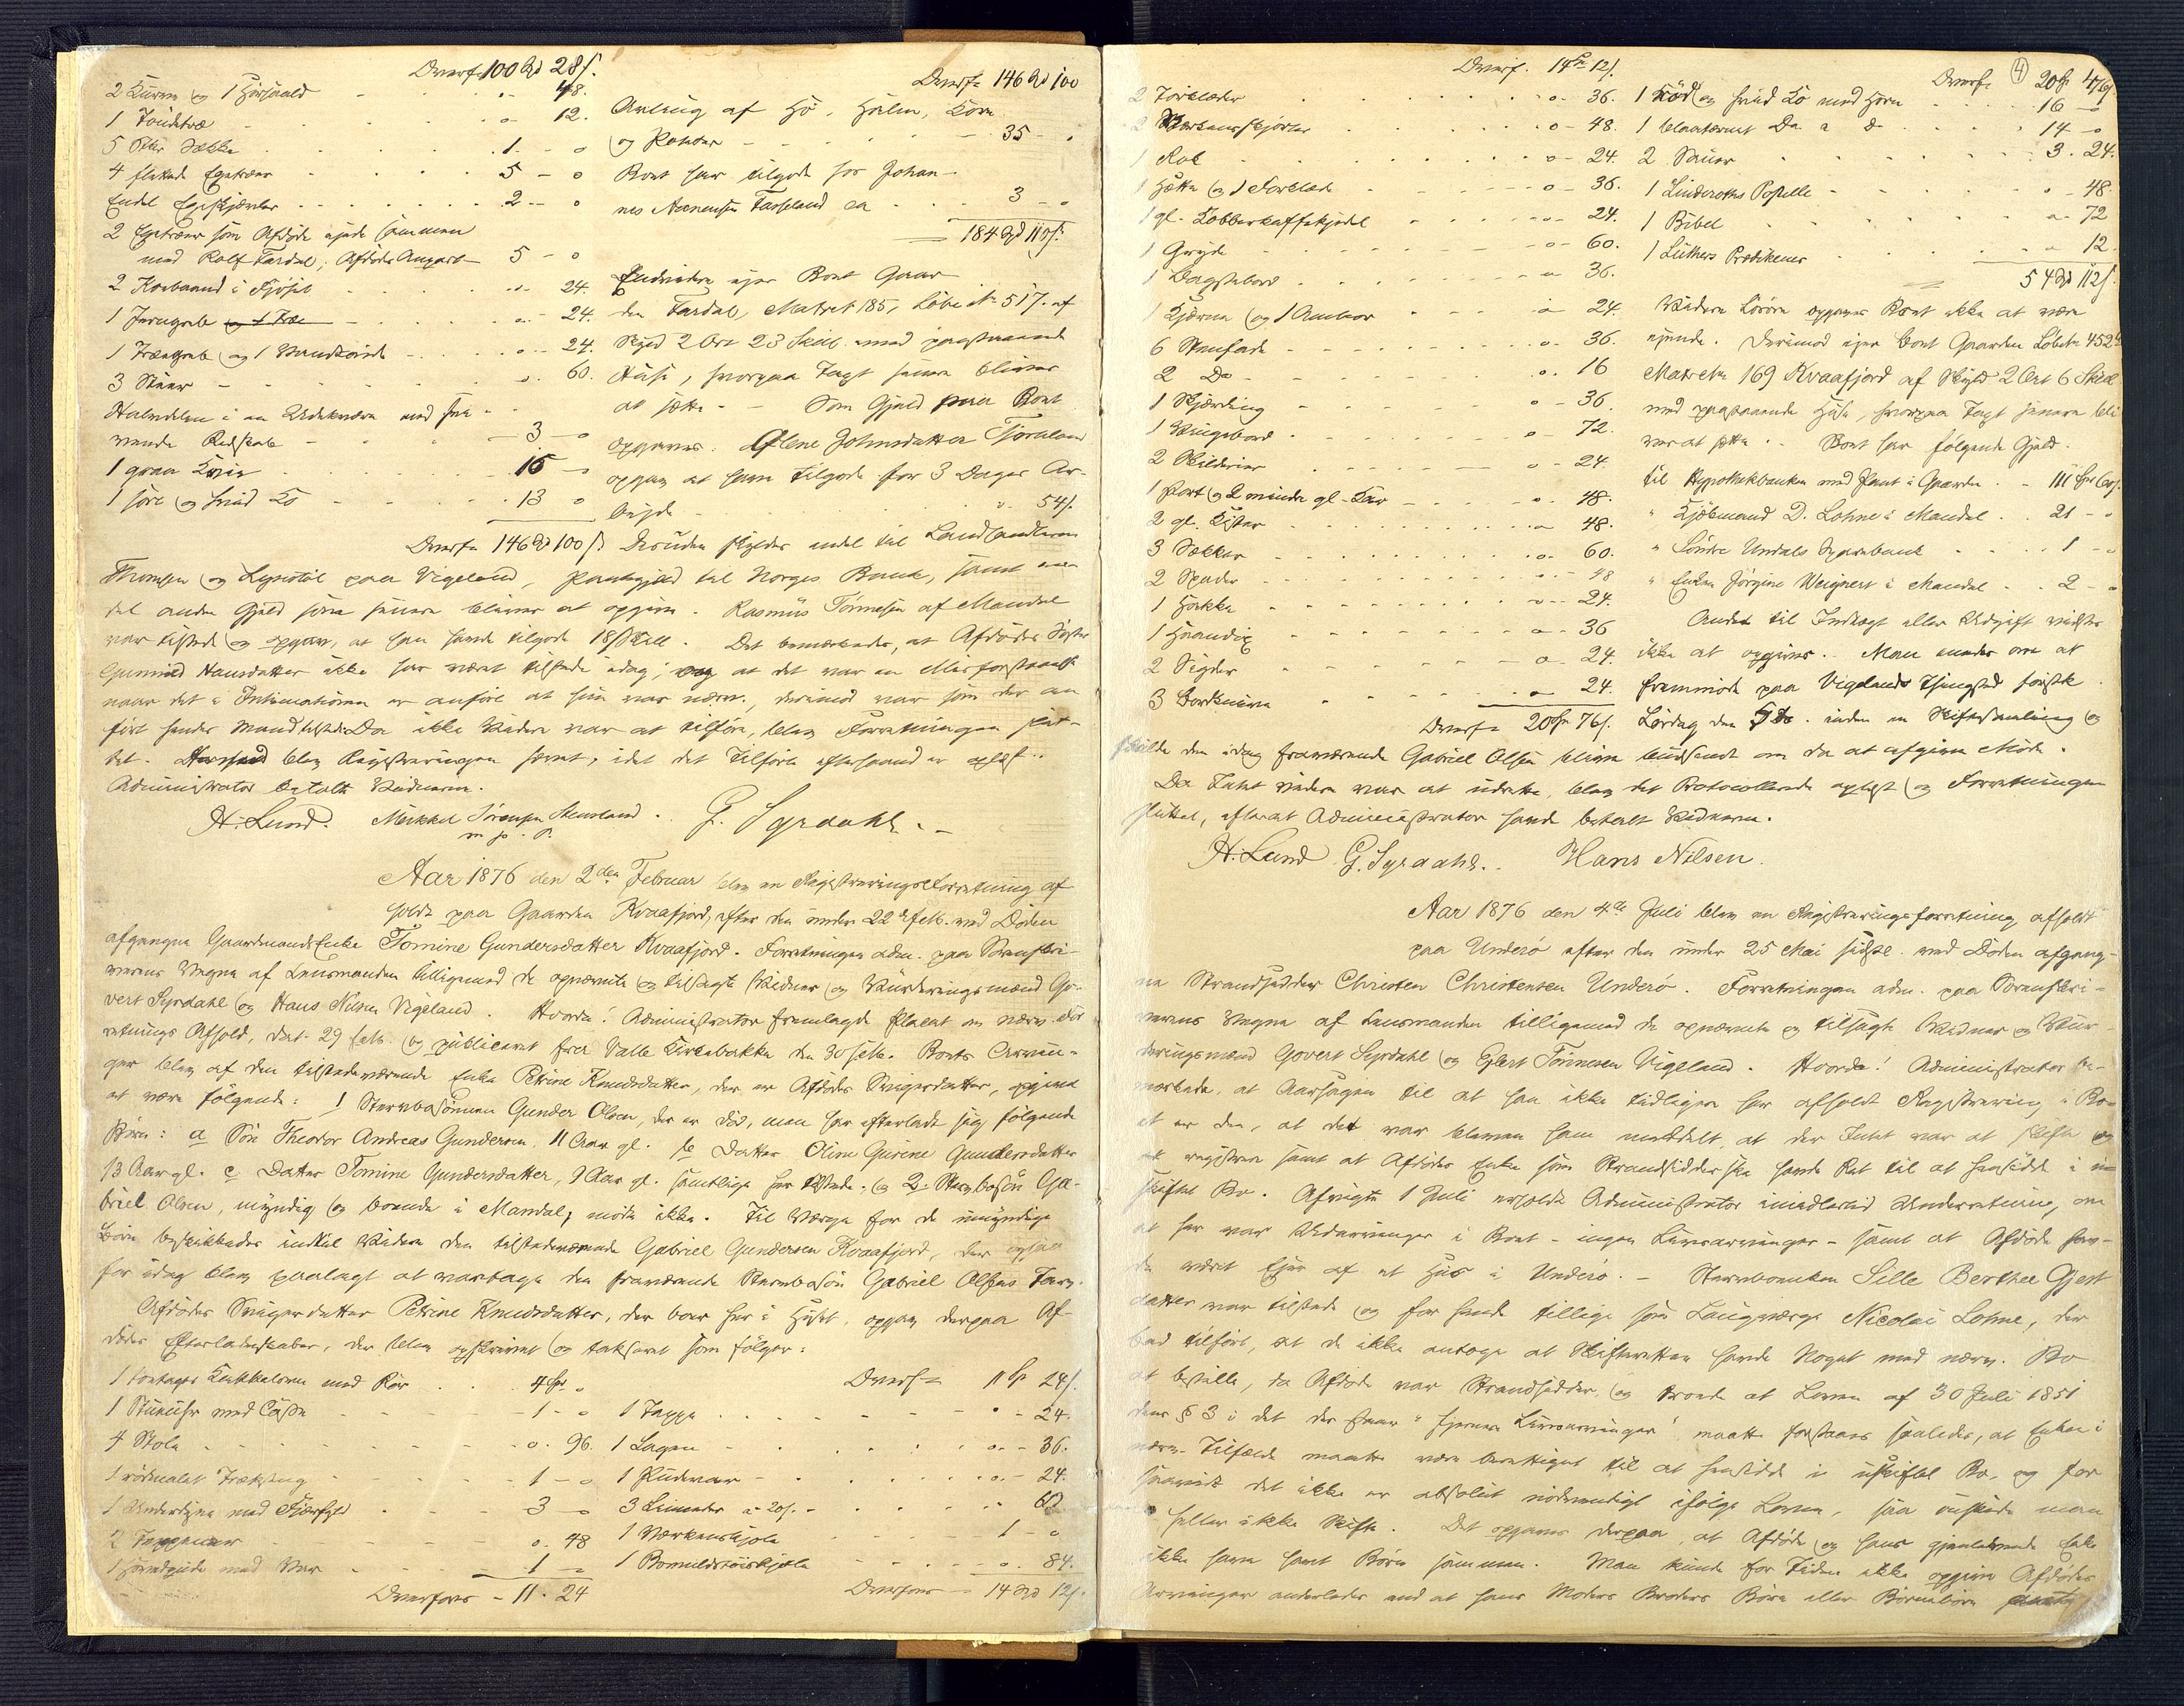 Overf. 100 Spd 28 s.
2 Kurve og 1 Hørsaald - o - 48.
1 Tøndetræ - o - 12.
5 Sække 1 - o
4 flekkede Egetræer 5 - o
Endel Egeskjævler 2 - o
2 Egetræer som Afdøde eiede sammen
med Rolf Tardal, Afdødes Anpart 5 - o
2 Kobaand i Fjøset o - 24.
1 Jerngreb o - 24.
1 Trægreb og 1 Vandtønde o - 24.
3 Stauer o - 60.
Halvdelen i en Vedskov med
værende Redskab 3 - o
1 graa Kvie 15 - o
1 sort og hvid Ko 13 o
Overf. 146 Spd 100 s.
Overf. 146 Spd 100
Avling af Hø, Halm, Korn
og Poteter 35 - o
Boet har tilgode hos Johan-
nes Aanensen Tarseland ca 3 - o
184 Spd 110 s.
Endvidere eier Boet Gaar-
den Tardal, Matr.et 185, Løbe No 517 af
Skyld 2 Ort 23 Skill. med paastaaende
Huse, hvorpaa Taxt senere bliver
at sætte. - Som Gjæld paa Boet
opgaves: Olene Johnsdatter Tjorteland
opgav at have tilgode for 3 Dages Ar-
beide o 54 s.
Desuden skyldes endel til Landhandlerne
Thomsen og Lynotøl paa Vigeland, Pantegjæld til Norges Bank, samt en
del anden Gjæld som senere bliver at opgive. Rasmus Tønnesen af Mandal
var tilstede og opgav, at han havde tilgode 18 Skill. Det bemærkedes, at Afdødes Søster
Gunnild Hansdatter ikke har været tilstede idag, og at det var en Misforstaaelse
naar det i Intimationen er anført at hun var nærv., derimod var som der an-
ført hendes Mand tilstede. Da ikke Videre var at tilføre, blev Forretningen slut-
tet. blev Registreringen hævet, idet det Tilførte efterhaand er oplæst.
Administrator betalte Vidnerne.
H. Lund. Mikkel Sørensen Stuvland. G. Syrdahl.
m. p. P.
Aar 1876 den 2den Februar blev en Registreringsforretning af-
holdt paa Gaarden Kvaafjord, efter den under 22de f. M. ved Døden
afgangne Gaardmandsenke Tomine Gundersdatter Kvaafjord. Forretningen adm. paa Sorenskri-
verens Vegne af Lensmanden tilligemed de opnævnte og tilsagte Vidner og Vurderingsmænd Go-
vert Syrdahl og Hans Nilsen Vigeland. Hvorda! Administrator fremlagde Placat om nærv. For-
retnings Afhold, dat. 29 f. M. og publiceret fra Valle Kirkebakke den 30 f. M. Boets Arvin-
ger blev af den tilstedeværende Enke Petrine Knudsdatter, der er Afdødes Svigerdatter, opgivne
at være følgende: 1 Stervbosønnen Gunder Olsen, der er død, men har efterladt sig følgende
Børn: a Søn Theodor Andreas Gundersen, 11 Aar gl. b Datter Oline Gurine Gundersdatter
13 Aar gl. c Datter Tomine Gundersdatter, 9 Aar gl. samtlige her tilstede, og 2. Stervbosøn Ga-
briel Olsen, myndig og boende i Mandal, mødte ikke. Til Værge for de umyndige
Børn beskikkedes indtil Videre den tilstedeværende Gabriel Gundersen Kvaafjord, der ogsaa
for idag blev paalagt at varetage den fraværende Stervbosøn Gabriel Olsens Tarv.
Afdødes Svigerdatter Petrine Knudsdatter, der boer her i Huset, opgav derpaa Af-
dødes Efterladenskaber, der blev opskrevet og taxeret som følger:
1 toetages Kakkelovn med Rør 4 Spd o
1 Stueuhr med Casse 1 - o
4 Stole o - 96.
1 rødmalet Trækiste 1 - o
1 Underdyne med Fjærfyld 3 - o
2 o - 48
1 Hovedpude med Var 1 - o
Overføres - 11 - 24
Overf. 11 Sp 24 s.
1 Teppe o - 24.
1 Lagen o - 36.
1 Pudevar o - 24.
3 Linneder a 20 s. - 60
1 Værkenskjole 1 - o
1 Bomuldstøiskjole o - 84.
Overføres - 14 Spd 12 s.
(4)
Overf. 14 Sp 12 s.
2 Tørklæder - o - 36.
2 Værkensskjørter - o - 48.
1 Kåbe - o - 24.
1 Hætte og 1 Forklæde - o - 36.
1 gl. Kobberkaffekjedel - o - 24.
1 Gryde - o - 60.
1 Dagsteboro - o - 36.
1 Kjærne og 1 Ambar - o - 24.
6 Stenfade - o - 36.
2 Do - o - 16
1 Skjæreting - o - 36.
1 Slagebord - o - 72.
2 Skilderier - o - 24.
1 stort og 2 mindre gl. Kar - o - 48.
2 gl. Kister - o - 48.
3 Sække - o - 60.
2 Spader - o - 48
1 Hakke - o - 24.
1 Haandøx - o - 36
2 Sigder - o - 24.
3 Bordknive - o - 24.
Overf. 20 Sp 76 s.
Overf. 20 Sp 76 s.
1 rød og hvid Ko med Horn 16 - o
1 blaatærnet Do a d 14 - o
2 Sauer 3 - 24.
1 Linderoths Postille o - 48.
1 Bibel o - 72
1 Luthers Prædikener o - 12
54 Spd 112 s.
Videre Løsøre opgaves Boet ikke at være
eiende. Derimod eier Boet Gaarden Løbe No 452
Matr. No 169 Kvaafjord af Skyld 2 Ort 6 Skill.
med paastaaende Huse, hvorpaa Taxt senere bli-
ver at sætte. Boet har følgende Gjæld:
til Hypothekbanken med Pant i Gaarden - 111 Spd
" Kjøbmand D. Lohne i Mandal 21 - o
" Søndre Undals Sparebank 1 - o
" Enken Jørgine Weignert i Mandal 2 - o
Andet til Indtægt eller Udgift vidstes
ikke at opgives. Man enedes om at
fremmøde paa Vigelands Thingsted førstk.
Lørdag den 5te inden en Skiftesamling og
skulde den idag fraværende Gabriel Olsen blive budsendt om da at afgive Møde.
Da Intet videre var at udrette, blev det Protocollerede oplæst og Forretningen
sluttet, efterat Administrator havde betalt Vidnerne.
H. Lund G. Syrdahl. Hans Nilsen.
Aar 1876 den 4de Juli blev en Registreringsforretning afholdt
paa Underø efter den under 25 Mai sidstl. ved Døden afgang-
ne Strandsidder Christen Christensen Underø. Forretningen adm. paa Sorenskri-
verens Vegne af Lensmanden tilligemed de opnævnte og tilsagte Vidner og Vur-
deringsmænd Govert Syrdahl og Eilert Tønnesen Vigeland. Hvorda! Administrator be-
mærkede, at Aarsagen til at han ikke tidligere har afholdt Registrering i Bo-
et er den, at det var bleven ham meddelt, at der Intet var at skifte og
at registrere samt at Afdødes Enke som Strandsidderske havde Ret til at hensidde i u-
skiftet Bo. Afvigte 1 Juli erholdt Administrator imidlertid Underretning, om
at her var Udarvinger i Boet - ingen Livsarvinger - samt at Afdøde hav-
de været Eier af et Hus i Underø. - Stervboenken Sille Berthee Gjert
datter var tilstede og for hende tillige som Laugværge Nicolai Lohne, der
bad tilført, at de ikke antoge at Skifteretten havde Noget med nærv. Bo
at bestille, da Afdøde var Strandsidder, og troede at Loven af 30 Juli 1851
dens § 3 i det der staar "fjernere Livsarvinger" maatte forstaaes saaledes, at Enken i
nærv. Tilfælde maatte være berettiget til at hensidde i uskiftet Bo, og for
saavidt det ikke er absolut nødvendigt ifølge Loven, saa ønskede man
heller ikke Skifte. Det opgaves derpaa, at Afdøde og hans gjenlevende Enke
ikke have havt Børn sammen. Man kunde for Tiden ikke opgive Afdødes
Arvinger anderledes end at hans Moders Broders Børn eller Børnebørn